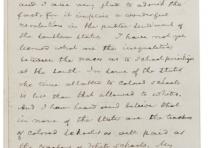 and I am very glad to record the
fact, for it implies a wonderful
revolution in the public sentiment of
the Southern States. I have not yet
learned what are the inequalities
between the races as to school privileges
at the South. In some of the States
the time allotted to colored schools
is less than that allowed to whites.
And I have heard and believe that
in none of the States are the teachers
of colored schools as well paid as
the teachers of White Schools. My